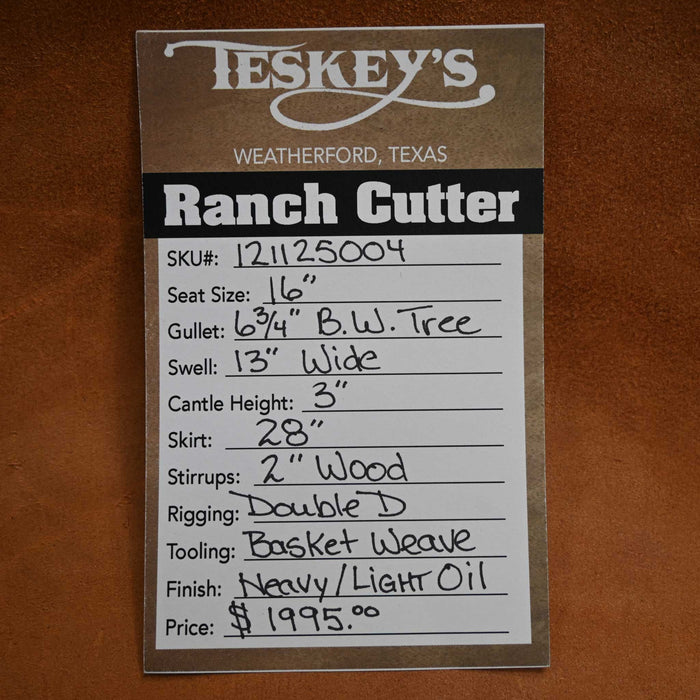 TESKEY'S
WEATHERFORD, TEXAS
Ranch Cutter
SKU#: 121125004
Seat Size: 16"
Gullet: 6 3/4" B.W. Tree
Swell: 13" Wide
Cantle Height: 3"
Skirt: 28"
Stirrups: 2" Wood
Rigging: Double D
Tooling: Basket Weave
Finish: Neavy/LIGHT Oil
Price: $ 1995.00